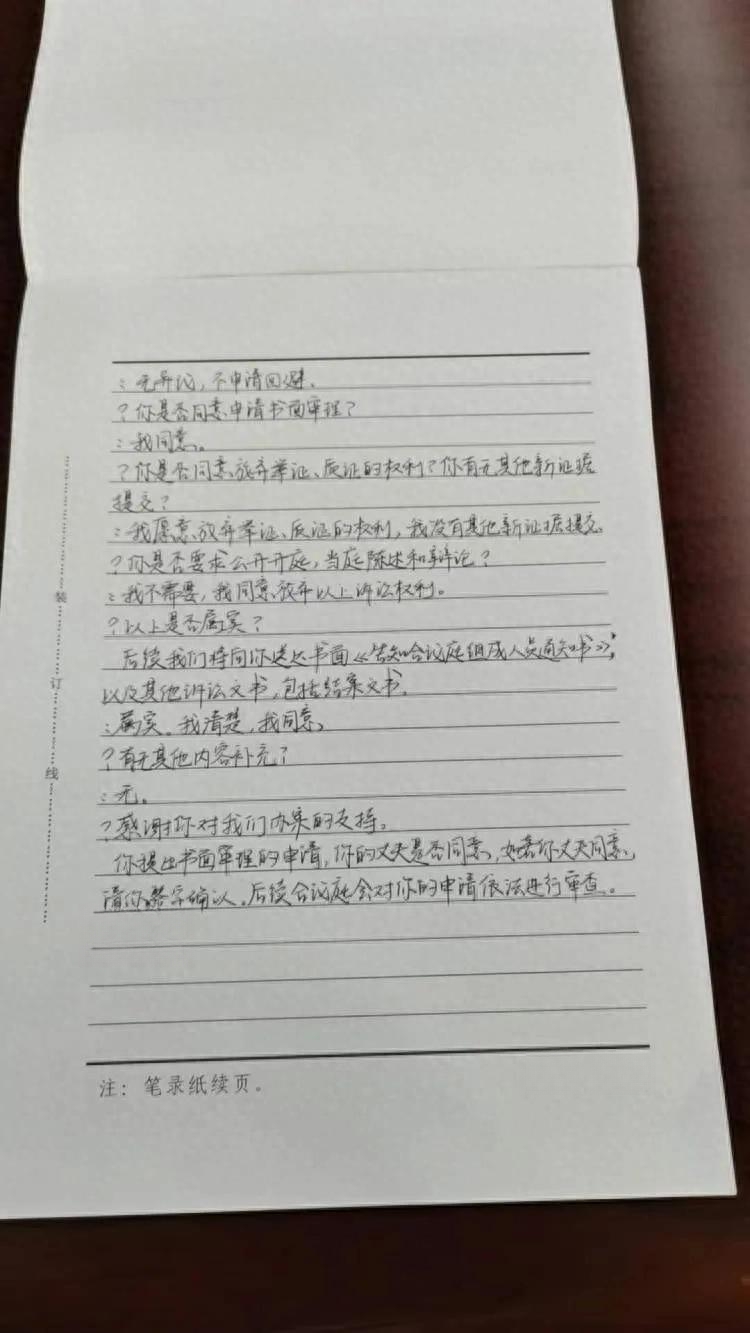 ：无异议，不申请回避。
？你是否同意申请书面审理？
：我同意。
？你是否同意放弃举证、质证的权利？你有无其他新证据
提交？
：我愿意放弃举证、质证的权利，我没有其他新证据提交。
？你是否要求公开开庭，当庭陈述和辩论？
：我不需要，我同意放弃以上诉讼权利。
？以上是否属实？
后续我们将向你送达书面《告知合议庭组成人员通知书》，
以及其他诉讼文书，包括结案文书。
：属实。我清楚，我同意。
？有无其他内容补充？
：无。
？感谢你对我们办案的支持。
你提出书面审理的申请，你的丈夫是否同意，如若你丈夫同意，
请你签字确认。后续合议庭会对你的申请依法进行审查。
注：笔录纸续页。
装
订
线